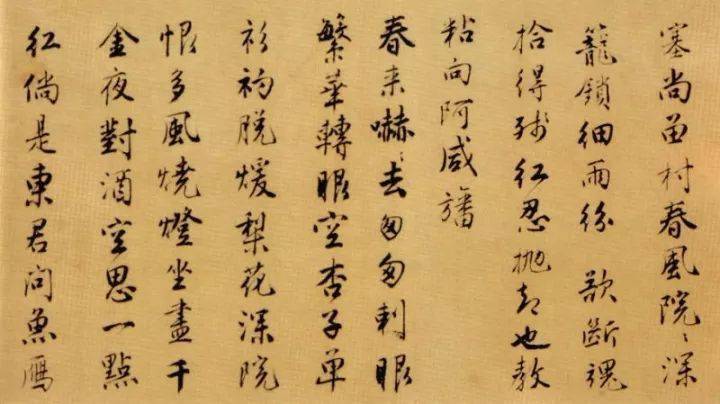 塞尚留村春風院〻深
籠鎖細雨紛 欲斷魂
拾得殘紅忍拋却也教
粘向阿咸旛
春来嚇〻去匆匆刺眼
繁華轉眼空杏子單
衫初脫煖梨花深院
恨多風燒燈坐盡千
金夜對酒空思一點
紅倘是東君問魚雁